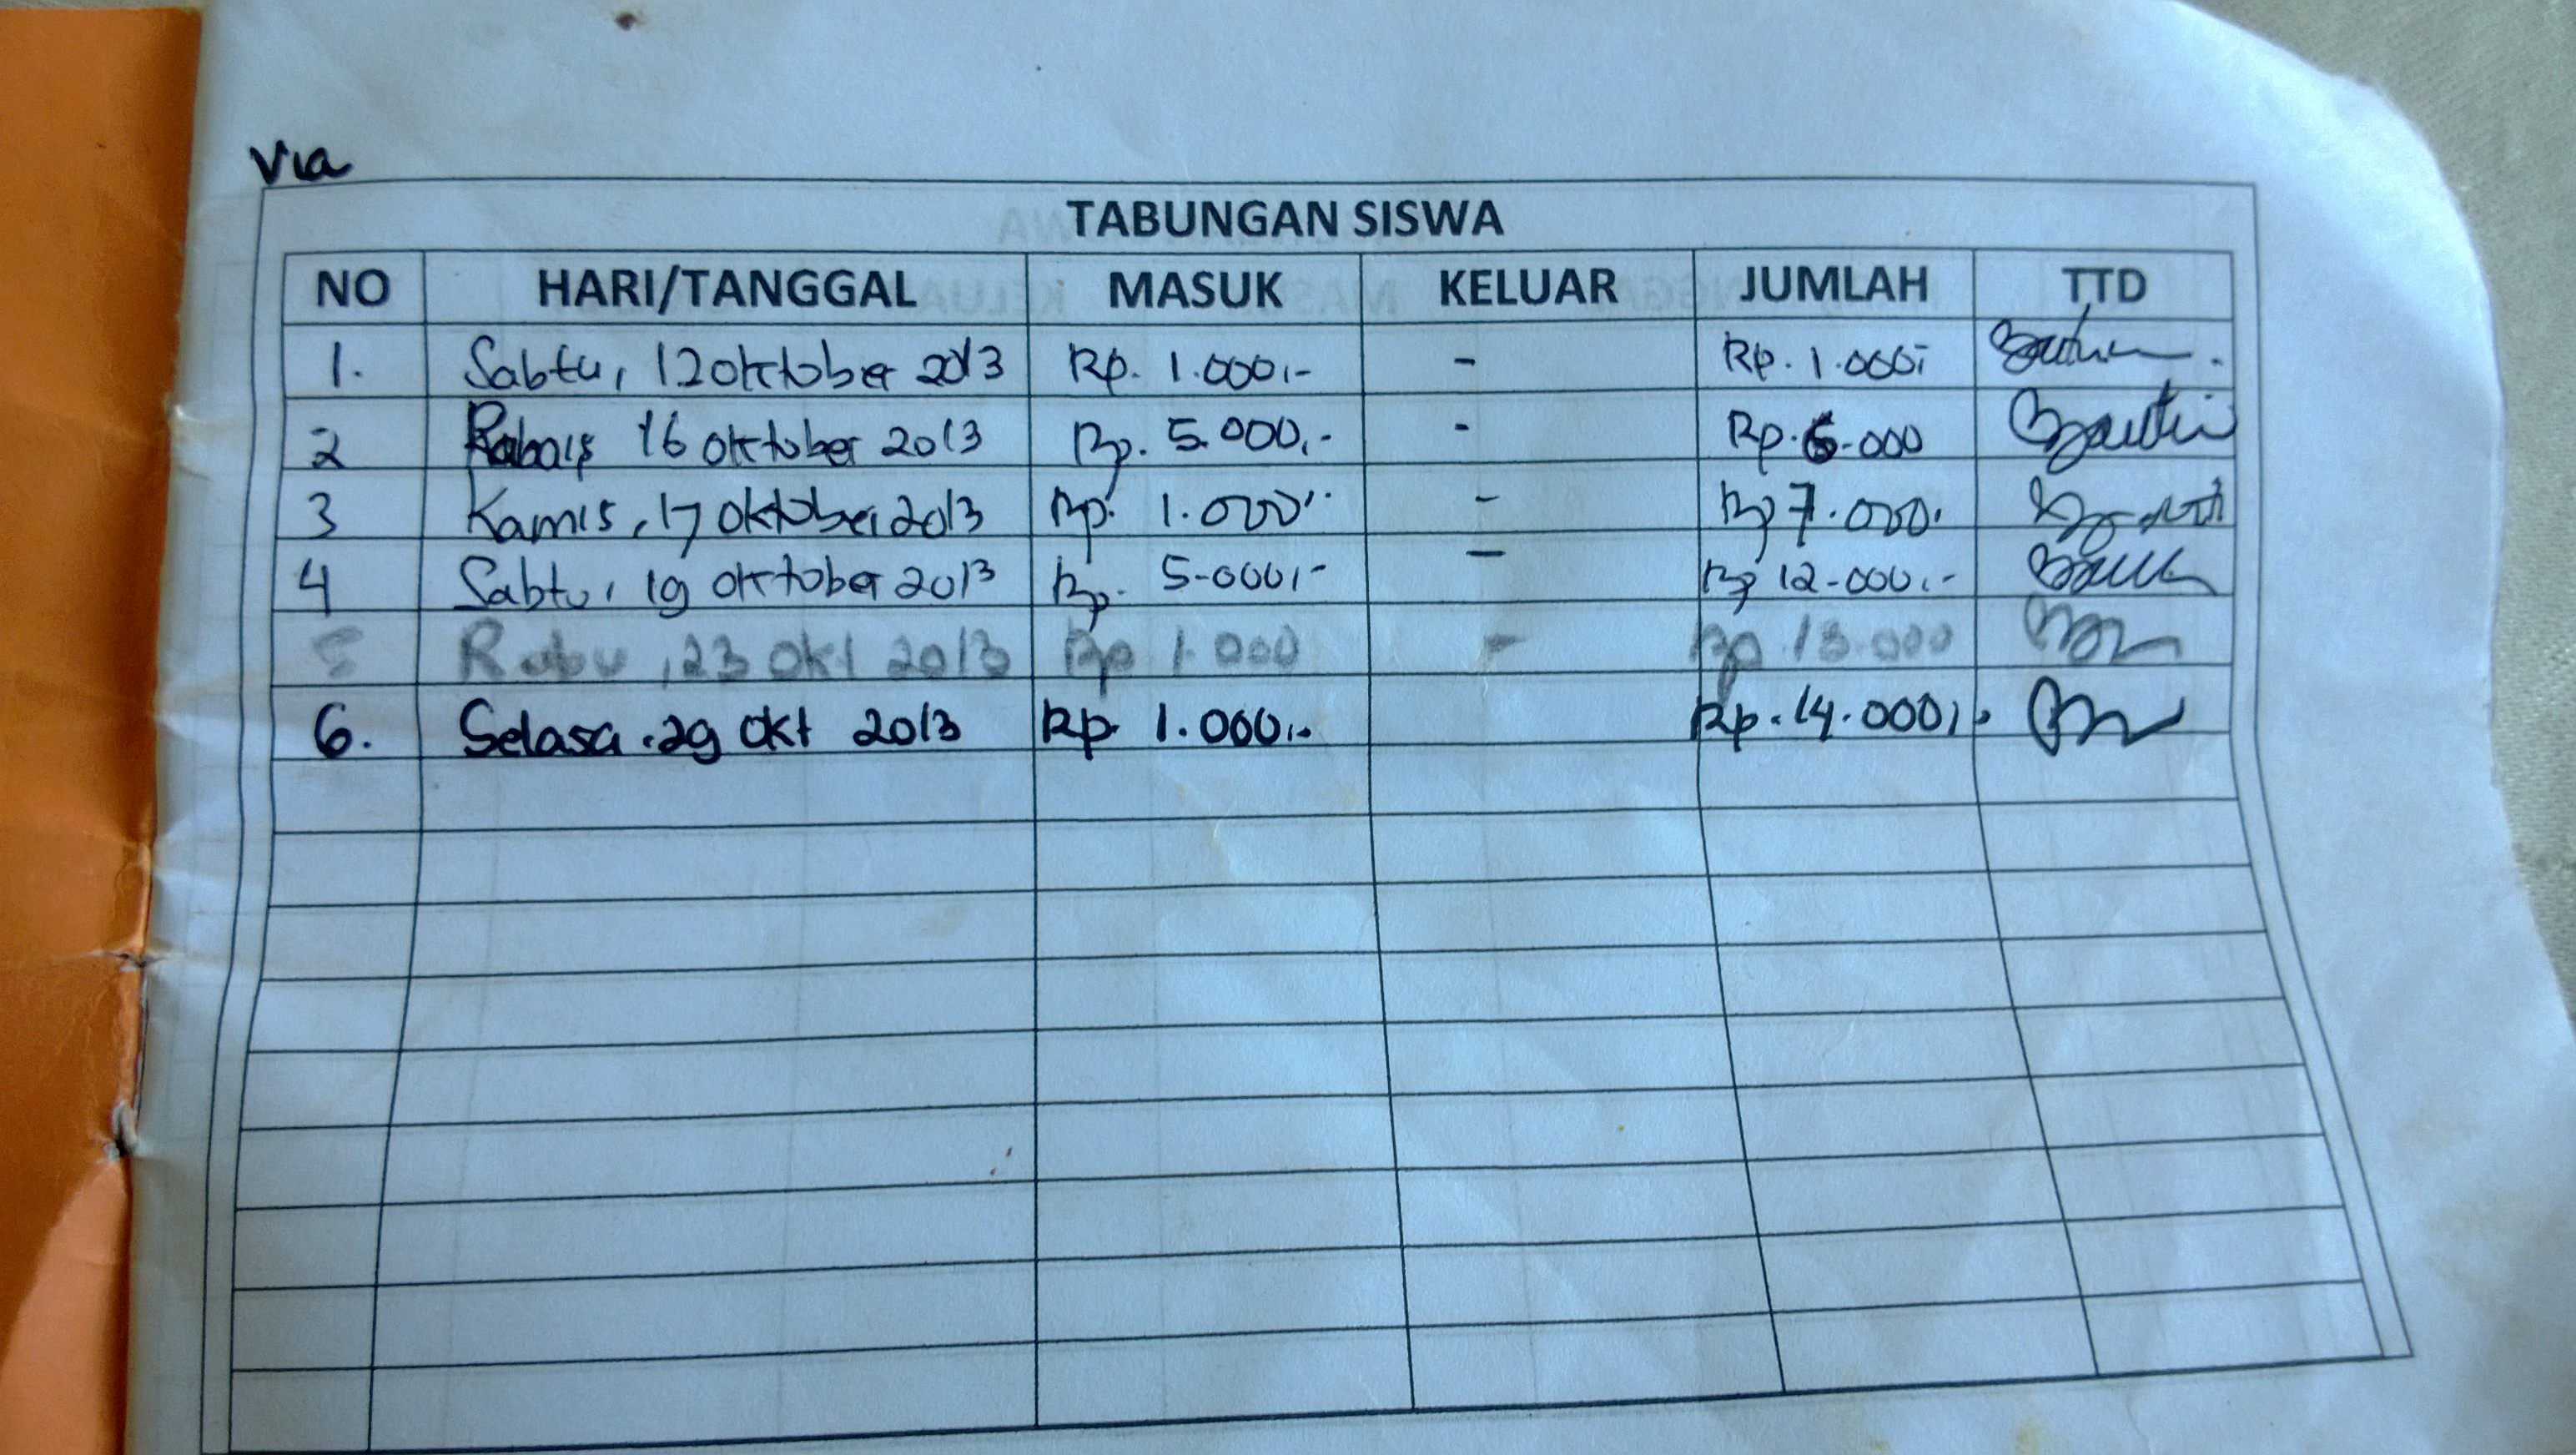 Via
TABUNGAN SISWA
NO HARI/TANGGAL MASUK KELUAR JUMLAH TTD
1. Sabtu, 12 oktober 2013 Rp. 1.000,- - Rp. 1.000,-
2 16 oktober 2013 Rp. 5.000,- - Rp. 6.000
3 Kamis, 17 oktober 2013 Rp. 1.000,- - Rp 7.000.
4 Sabtu, 19 oktober 2013 Rp. 5.000,- - Rp 12.000,-
5 Rabu, 23 Okt 2013 Rp 1.000 - Rp 13.000
6. Selasa. 29 Okt 2013 Rp. 1.000,- Rp. 14.000,-